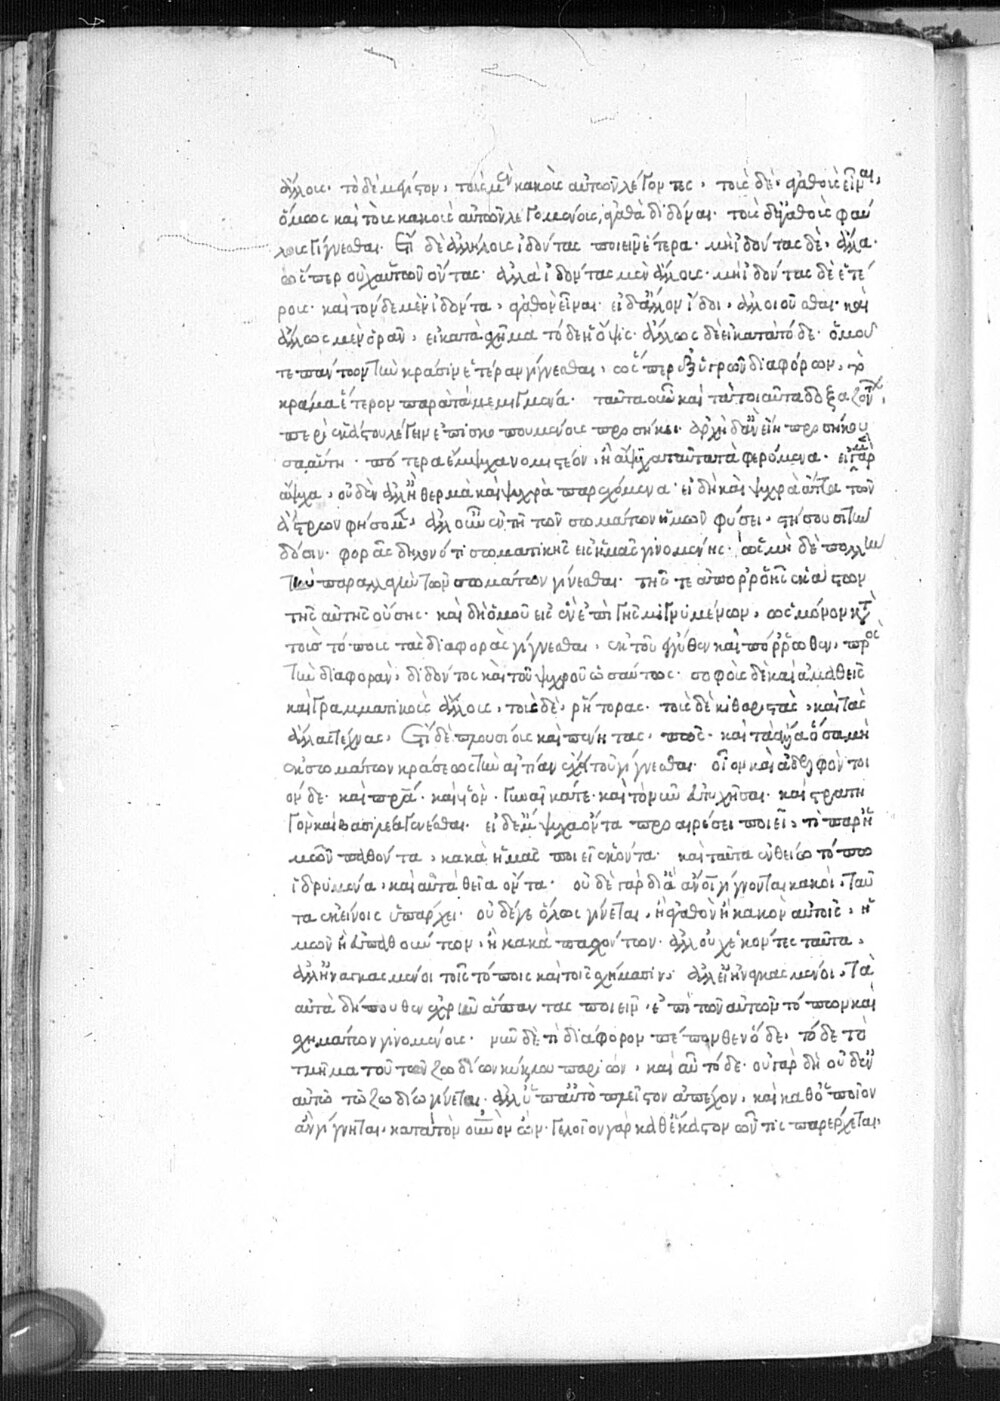 ἄλλοις· τὸ δὲ μέγιστον, τοὺς μὲν κακοὺς αὐτῶν λέγοντες, τοὺς δὲ ἀγαθοὺς εἶναι,
ὅμως καὶ τοὺς κακοὺς αὐτῶν λεγομένους, ἀγαθὰ διδόναι· τοὺς δ' ἀγαθοὺς φαύ
λους γίγνεσθαι· ἔτι δὲ ἀλλήλους ἰδόντας ποιεῖν ἕτερα· μὴ ἰδόντας δὲ, ἄλλα·
ὥσπερ οὐχ αὑτῶν ὄντας· ἀλλὰ ἰδόντας μὲν ἄλλους· μὴ ἰδόντας δὲ ἑτέ
ρους· καὶ τόνδε μὲν ἰδόντα, ἀγαθὸν εἶναι· εἰ δ' ἄλλον ἴδοι, ἀλλοιοῦσθαι· καὶ
ἄλλως μὲν ὁρᾶν, εἰ κατὰ σχῆμα τόδε ἡ ὄψις· ἄλλως δὲ εἰ κατὰ τόδε· ὁμοῦ
τε πάντων τὴν κρᾶσιν ἑτέραν γίγνεσθαι, ὥσπερ ἐξ ὑγρῶν διαφόρων, τὸ
κρᾶμα ἕτερον παρὰ τὰ μεμιγμένα· ταῦτα οὖν καὶ τὰ τοιαῦτα δοξαζόντων,
περὶ ἑκάστου λέγειν ἐπισκοπουμένοις προσήκει· ἀρχὴ δ' ἂν εἴη προσήκου
σα αὕτη· πότερα ἔμψυχα νομιστέον, ἢ ἄψυχα ταῦτα τὰ φερόμενα· εἰ μὲν γὰρ
ἄψυχα, οὐδὲν ἀλλ' ἢ θερμὰ καὶ ψυχρὰ παρεχόμενα· εἰ δὴ καὶ ψυχρὰ ἄττα τῶν
ἄστρων φήσομεν, ἀλλ' οὖν ἐν τῇ τῶν σωμάτων ἡμῶν φύσει, στήσουσι τὴν
δόσιν· φορᾶς δηλονότι σωματικῆς εἰς ἡμᾶς γινομένης· ὡς μὴ δὲ πολλὴν
τὴν παραλλαγὴν τῶν σωμάτων γίνεσθαι· τῆς τε ἀπορροῆς ἑκάστων
τῆς αὐτῆς οὔσης· καὶ δὴ ὁμοῦ εἰς ἓν ἐπὶ γῆς μιγνυμένων, ὡς μόνον κατὰ
τοὺς τόπους τὰς διαφορὰς γίγνεσθαι, ἐκ τοῦ ἐγγύθεν καὶ πόρρωθεν, πρὸς
τὴν διαφορὰν, διδόντος καὶ τοῦ ψυχροῦ ὡσαύτως· σοφοὺς δὲ καὶ ἀμαθεῖς
καὶ γραμματικοὺς ἄλλους, τοὺς δὲ, ῥήτορας· τοὺς δὲ κιθαριστὰς, καὶ τὰς
ἄλλας τέχνας, ἔτι δὲ πλουσίους καὶ πένητας, πῶς· καὶ τὰ ἄλλα ὅσα μὴ
ἐκ σωμάτων κράσεως τὴν αἰτίαν ἔχει τοῦ γίγνεσθαι· οἷον καὶ ἀδελφὸν τοι
όνδε· καὶ πατέρα· καὶ υἱὸν· γυναῖκά τε· καὶ τὸ νῦν εὐτυχῆσαι· καὶ στρατη
γὸν καὶ βασιλέα γενέσθαι· εἰ δ' ἔμψυχα ὄντα προαιρέσει ποιεῖ, τί παρ' ἡ
μῶν παθόντα, κακὰ ἡμᾶς ποιεῖ ἑκόντα· καὶ ταῦτα ἐν θείῳ τόπῳ
ἱδρυμένα, καὶ αὐτὰ θεῖα ὄντα· οὐδὲ γὰρ δι' ἃ ἄνθρωποι γίγνονται κακοὶ, ταῦ
τα ἐκείνοις ὑπάρχει· οὐδέ γε ὅλως γίνεται, ἢ ἀγαθὸν ἢ κακὸν αὐτοῖς, ἢ
μῶν ἢ εὐπαθούντων, ἢ κακὰ πασχόντων· ἀλλ' οὐχ ἑκόντες ταῦτα,
ἀλλ' ἠναγκασμένοι τοῖς τόποις καὶ τοῖς σχήμασιν· ἀλλ' εἰ ἠναγκασμένοι, τὰ
αὐτὰ δήπουθεν ἐχρῆν ἅπαντας ποιεῖν· ἐπὶ τῶν αὐτῶν τόπων καὶ
σχημάτων γινομένους· νῦν δὲ τί διάφορον πέπονθεν ὅδε, τόδε τὸ
τμῆμα τοῦ τῶν ζωδίων κύκλου παριὼν, καὶ αὖ τόδε· οὐ γὰρ δὴ οὐδ' ἐν
αὐτῷ τῷ ζωδίῳ γίνεται· ἀλλ' ὑπ' αὐτὸ πλεῖστον ἀπέχον, καὶ καθ' ὁποῖον
ἂν γίγνηται, κατὰ τὸν οὐρανὸν ὤν· γελοῖον γὰρ καθ' ἕκαστον ὧν τις παρέρχεται,